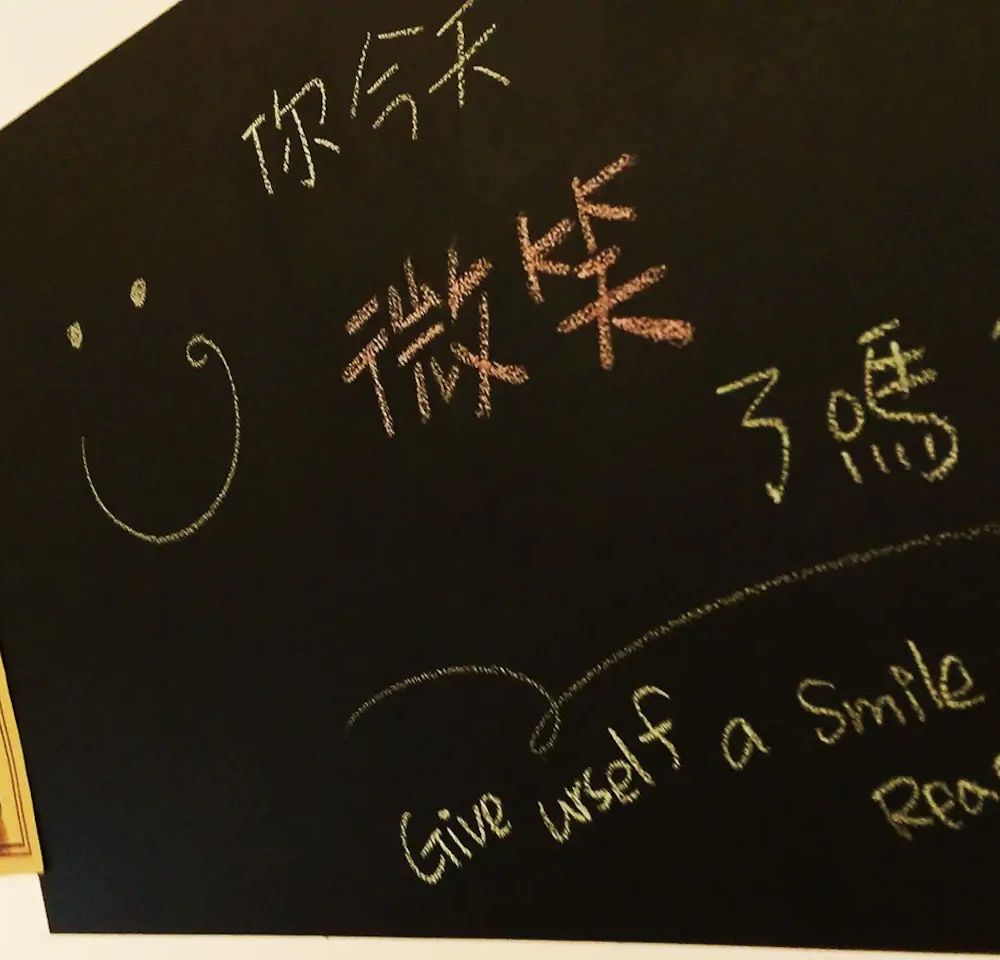 你今天
微笑
了嗎
Give urself a Smile